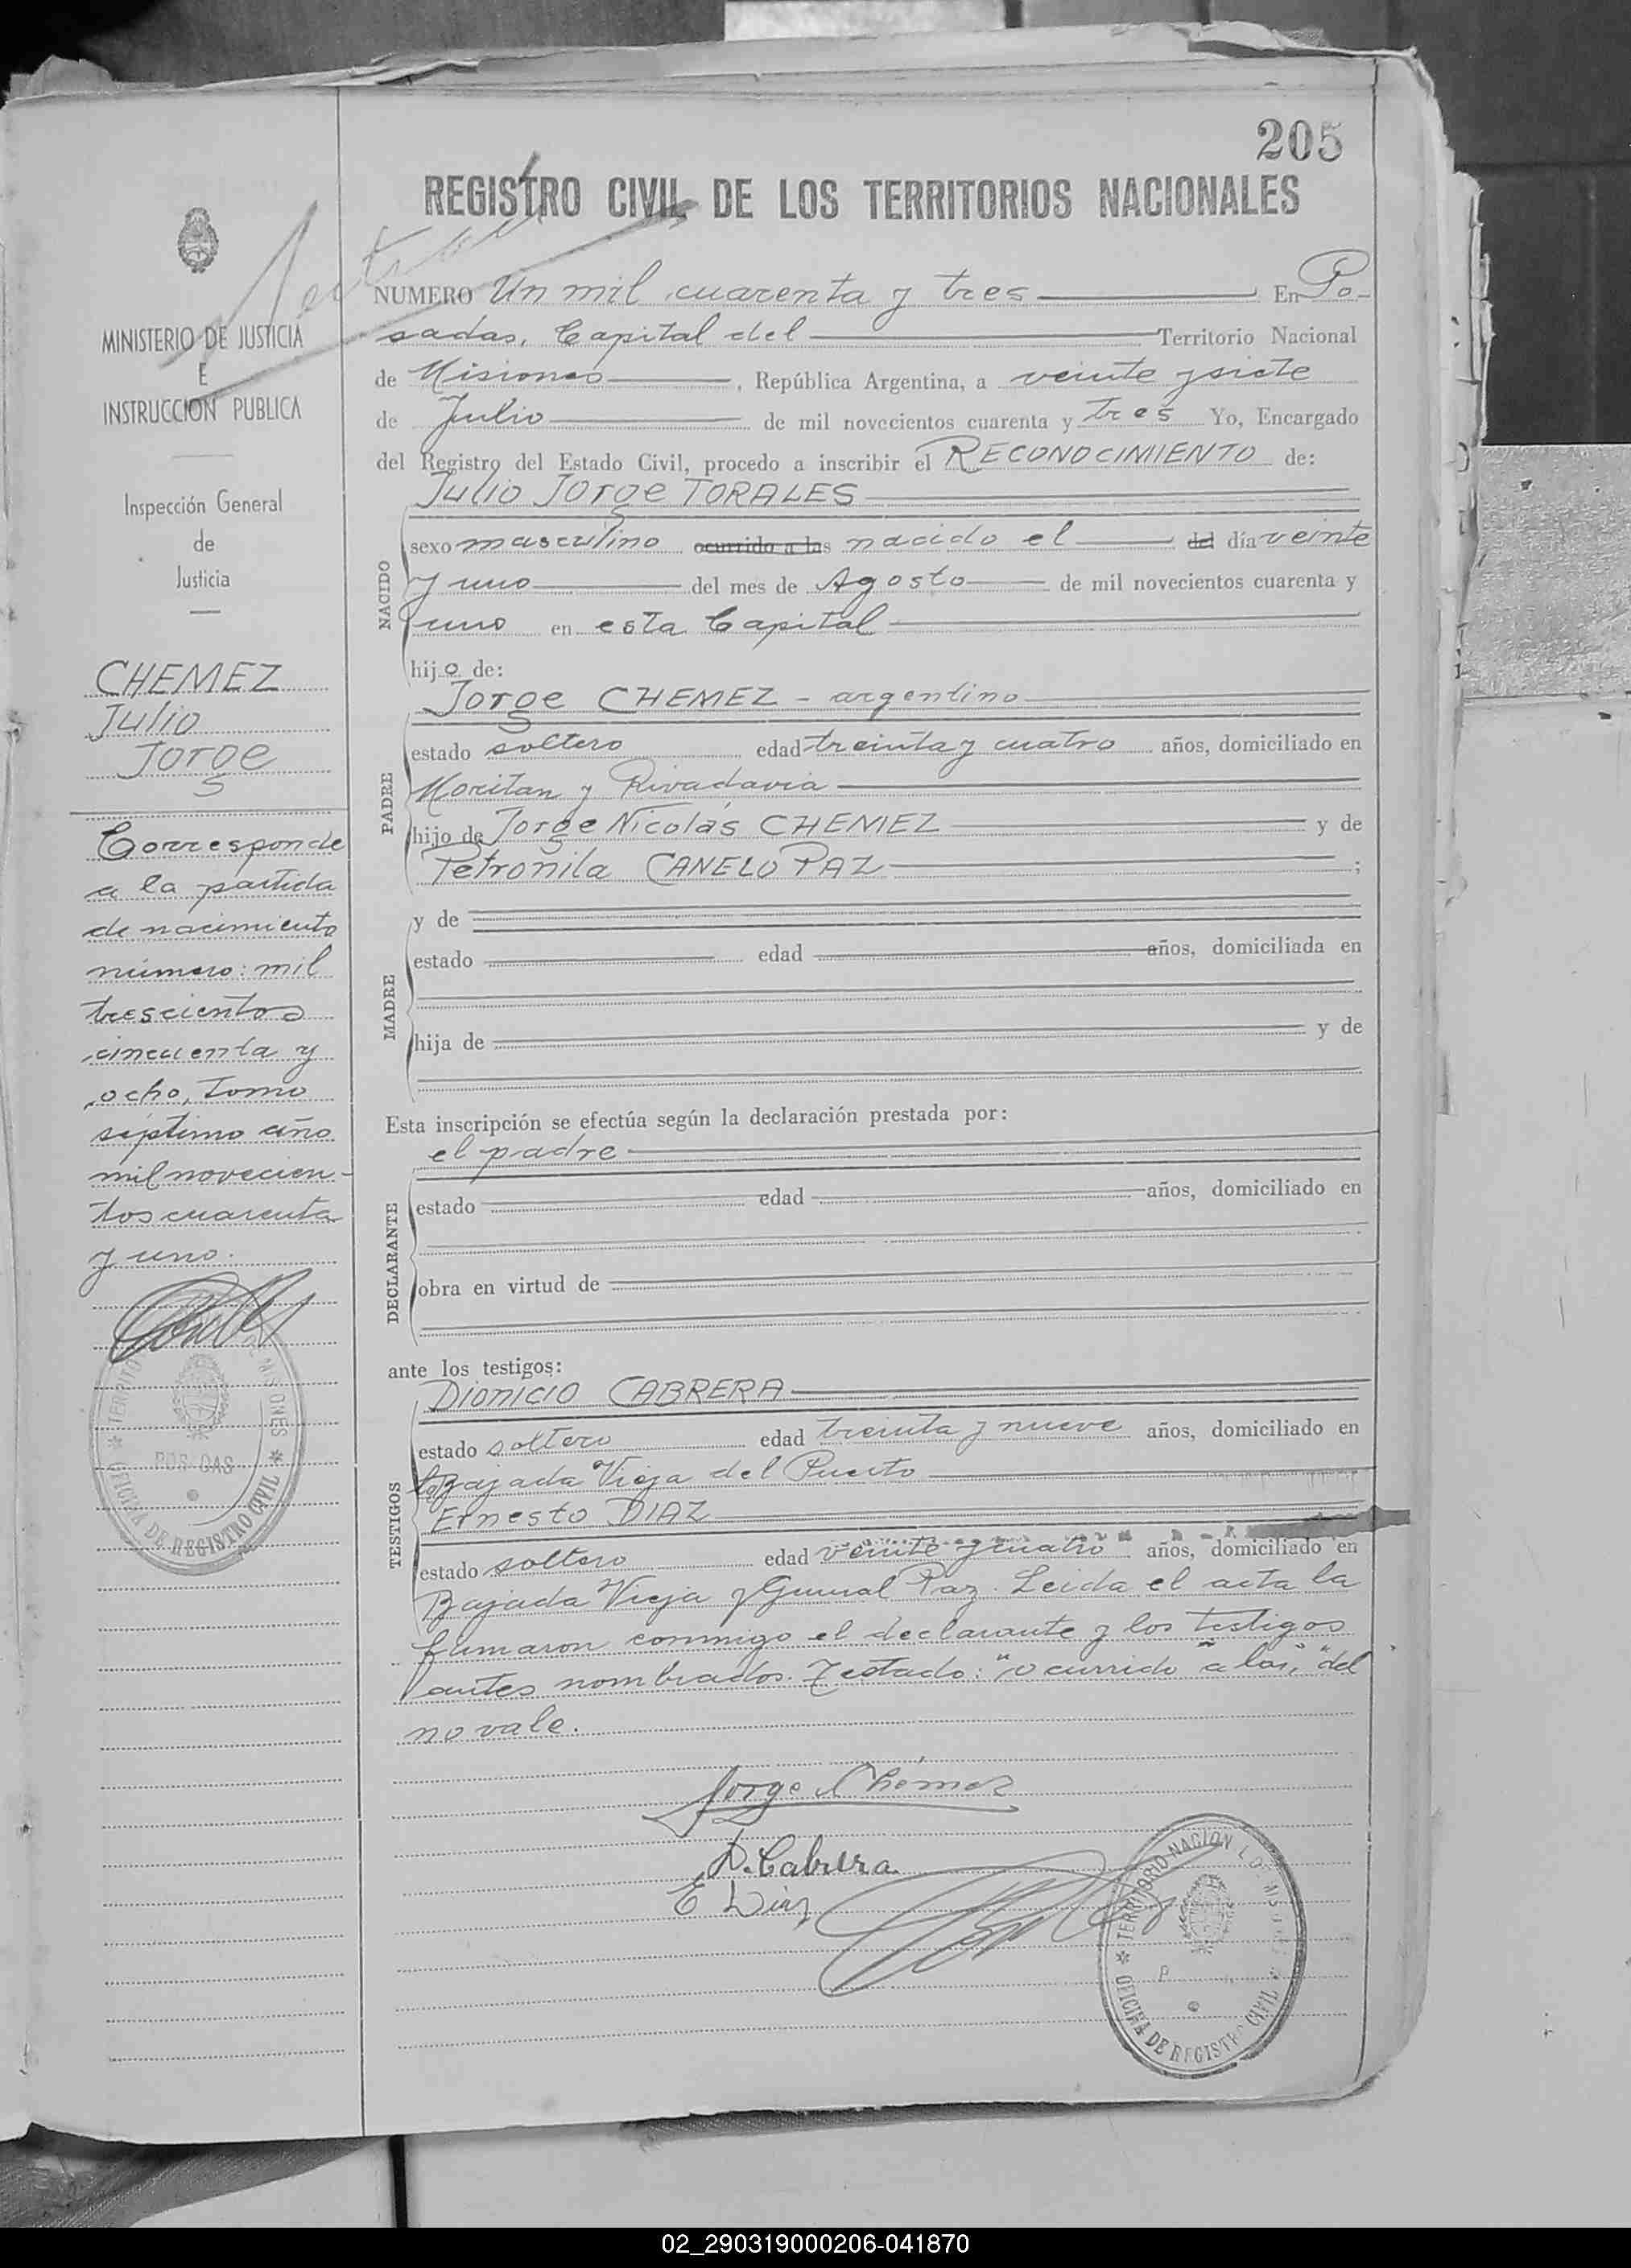 205
REGISTRO CIVIL DE LOS TERRITORIOS NACIONALES
MINISTERIO DE JUSTICIA
E
INSTRUCCION PUBLICA
Inspección General
de
Justicia
CHEMEZ
Julio
Jorge
Corresponde
a la partida
de nacimiento
número: mil
trescientos
cincuenta y
ocho, Tomo
séptimo año
mil novecien-
tos cuarenta
y uno.
TERRITO MISIONES
POSADAS
OFICINA DE REGISTRO CIVIL
NUMERO Un mil cuarenta y tres En Po-
sadas, Capital del Territorio Nacional
de Misiones, República Argentina, a veinte y siete
de Julio de mil novecientos cuarenta y tres Yo, Encargado
del Registro del Estado Civil, procedo a inscribir el RECONOCIMIENTO de:
Julio Jorge TORALES
NACIDO
sexo masculino ocurrido a las nacido el del día veinte
y uno del mes de Agosto de mil novecientos cuarenta y
uno en esta Capital
hijo de:
PADRE
Jorge CHEMEZ - argentino
estado soltero edad treinta y cuatro años, domiciliado en
Moritan y Rivadavia
hijo de Jorge Nicolás CHEMEZ y de
Petronila CANELO PAZ ;
MADRE
y de
estado edad años, domiciliada en
hija de y de
Esta inscripción se efectúa según la declaración prestada por:
DECLARANTE
el padre
estado edad años, domiciliado en
obra en virtud de
ante los testigos:
TESTIGOS
Dionicio CABRERA
estado soltero edad treinta y nueve años, domiciliado en
Bajada Vieja del Puerto
Ernesto DIAZ
estado soltero edad veinte y cuatro años, domiciliado en
Bajada Vieja y General Paz. Leida el acta la
firmaron conmigo el declarante y los testigos
antes nombrados. Testado: "ocurrido a las", "del
no vale.
Jorge Chémez
D. Cabrera
E Diaz
TERRITORIO NACIONAL
OFICINA DE REGISTRO CIVIL
02_290319000206-041870